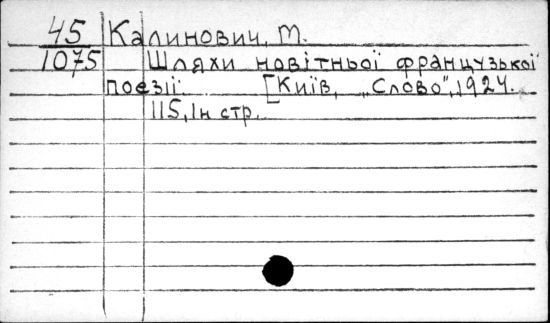 45 Калинович, М.
1075 Шляхи новітньої французької
поезії. [Київ, „Слово", 1924.
115, 1н стр.